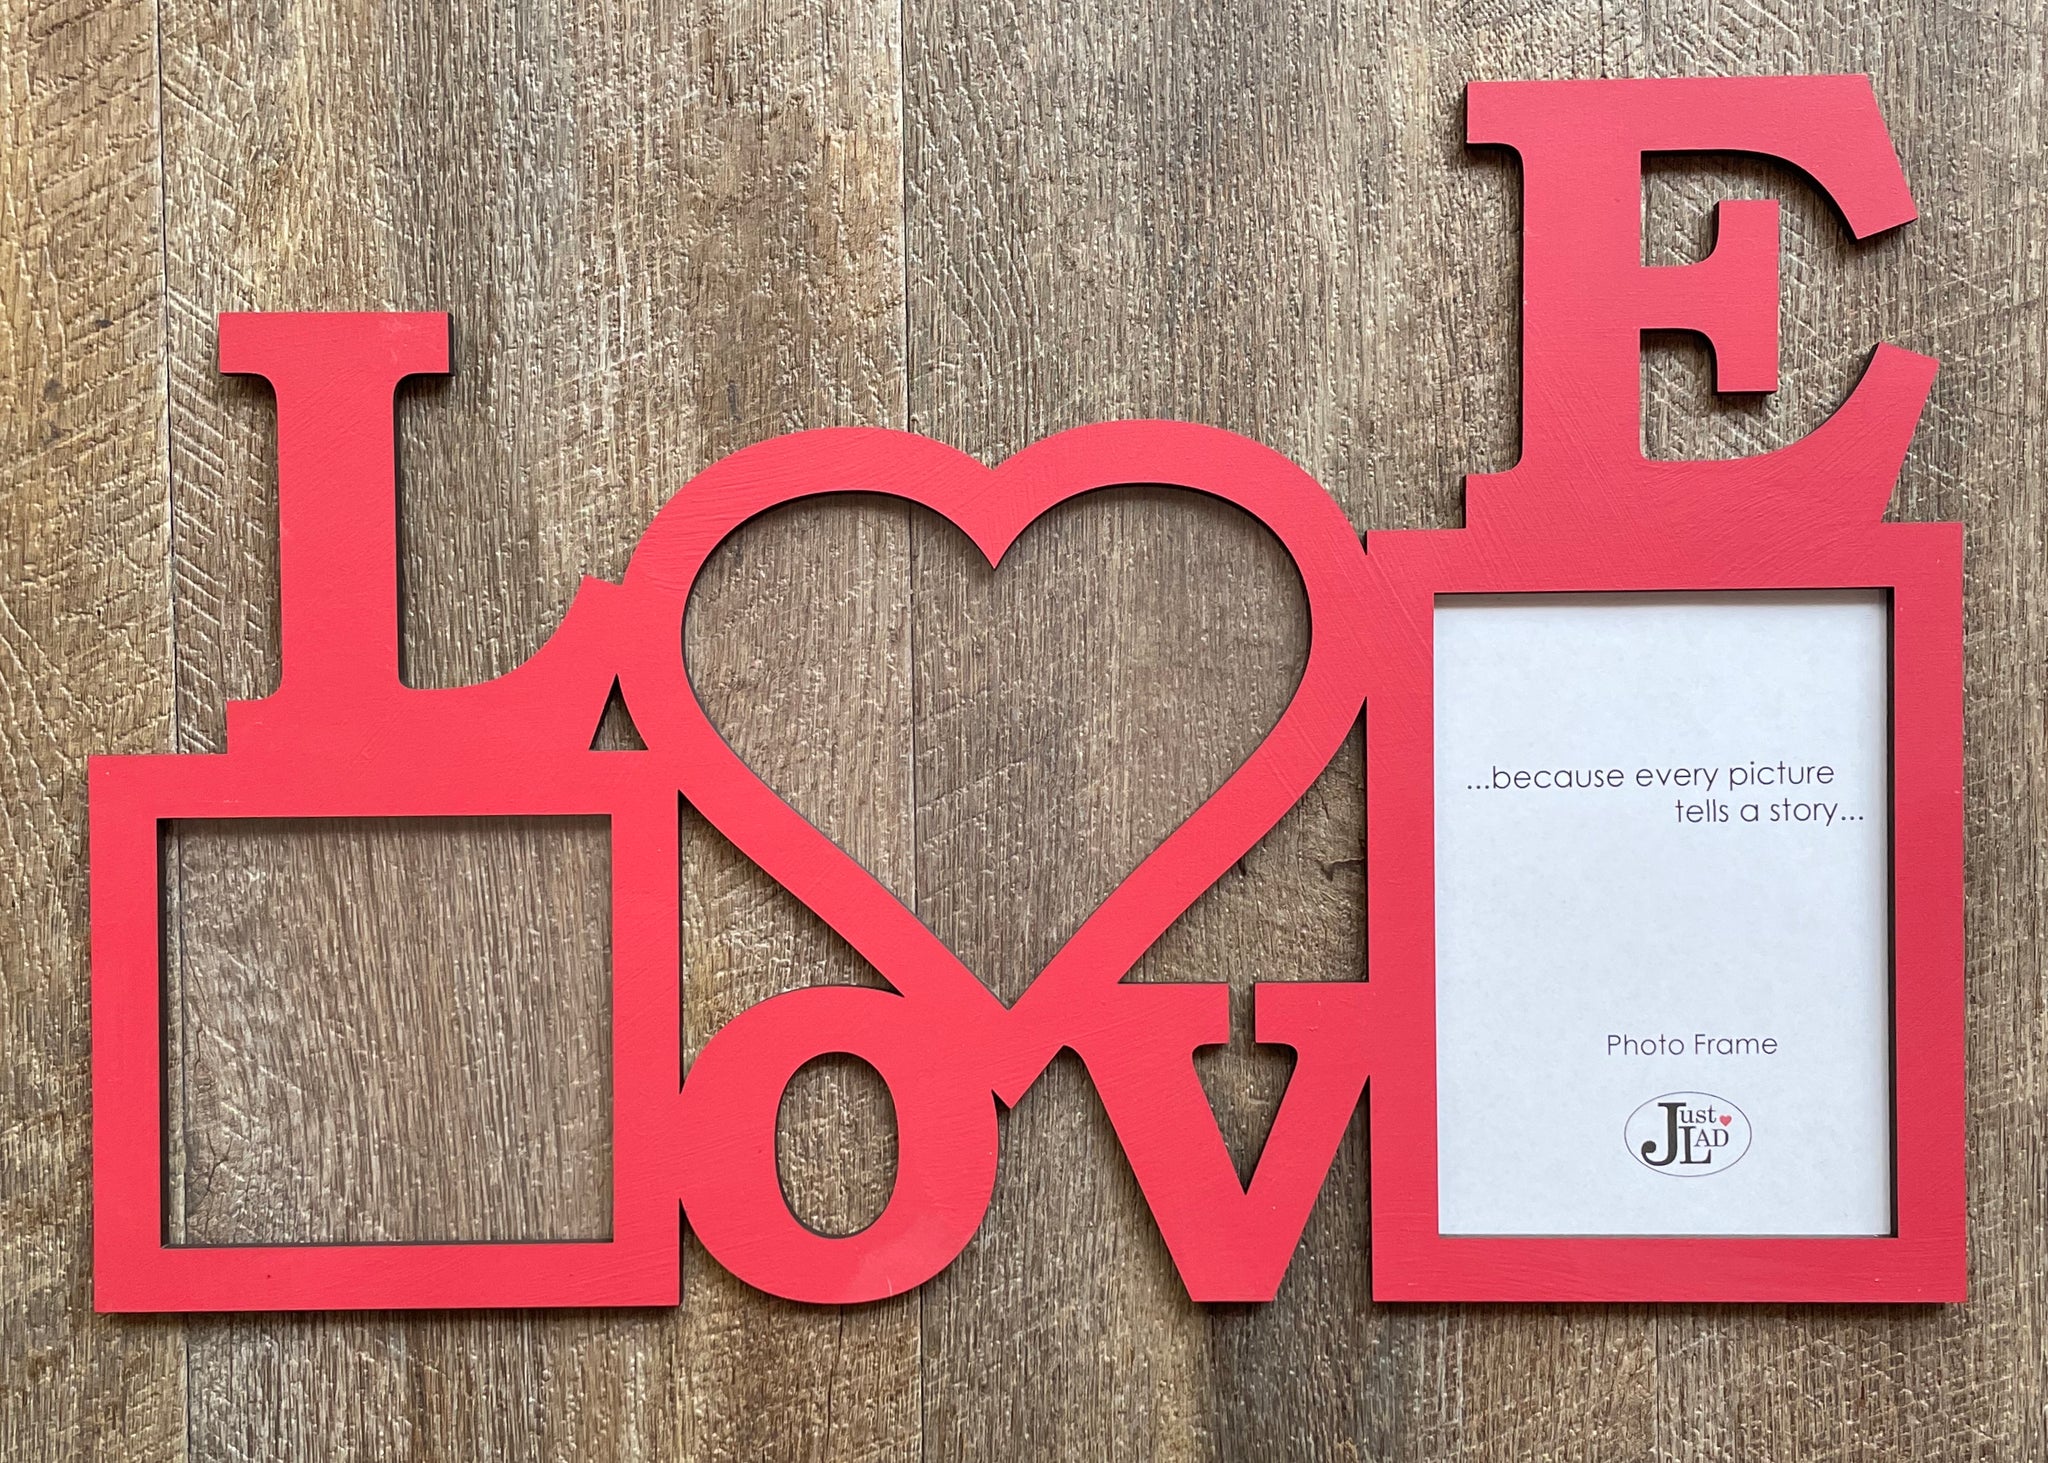 LovE
...because every picture
tells a story...
Photo Frame
Just
Lad